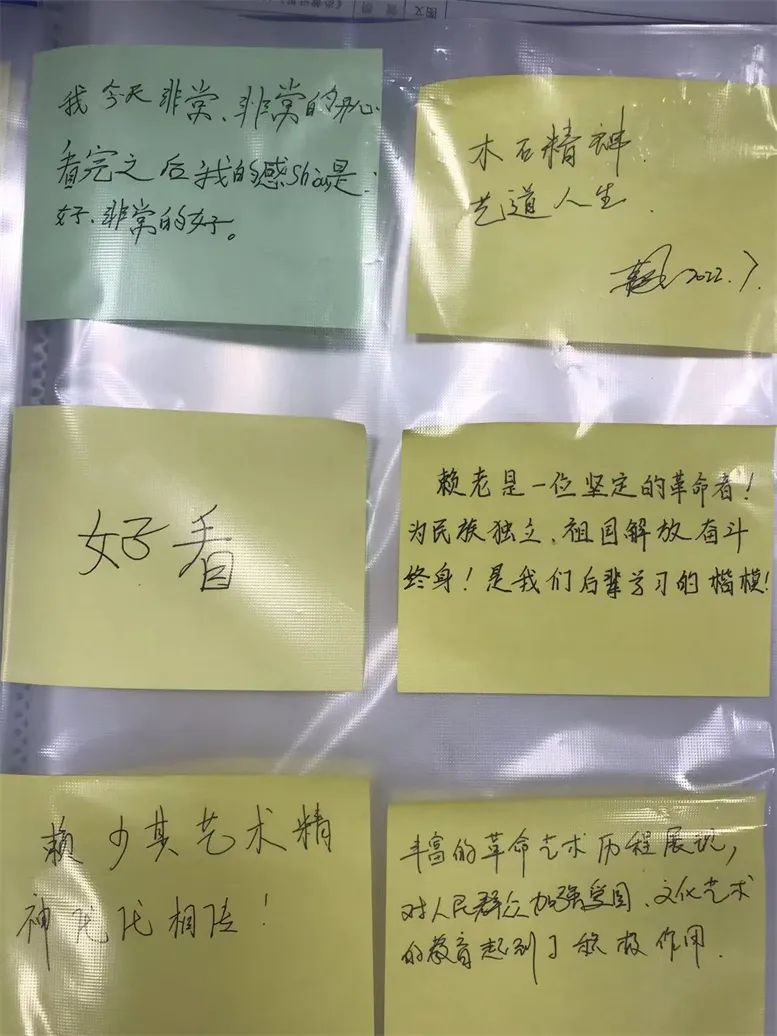 我今天非常、非常的开心
看完之后我的感Shou是:
好、非常的好。
木石精神.
艺道人生.
2022.7.
好看
赖老是一位坚定的革命者!
为民族独立、祖国解放奋斗
终身!是我们后辈学习的楷模!
赖少其艺术精
神代代相传!
丰富的革命艺术历程展现,
对人民群众加强爱国、文化艺术
的教育起到了积极作用.